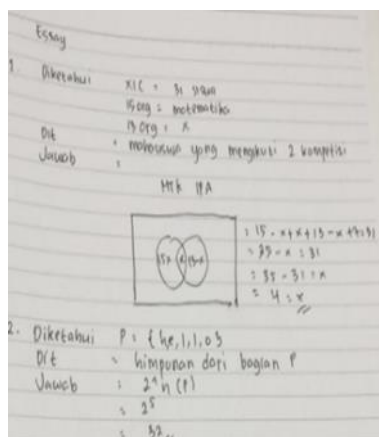 Essay
1. Diketahui XIC = 31 siswa
15 org = matematika
13 org = x
Dit = mahasiswa yang mengikuti 2 kompetisi
Jawab :
MTK IPA
15-x x 13-x
= 15 - x + x + 13 - x + 7 = 31
= 35 - x = 31
= 35 - 31 = x
= 4 = x
2. Diketahui P = { he, l, l, o }
Dit = himpunan dari bagian P
Jawab : 2^n (P)
= 2^5
= 32